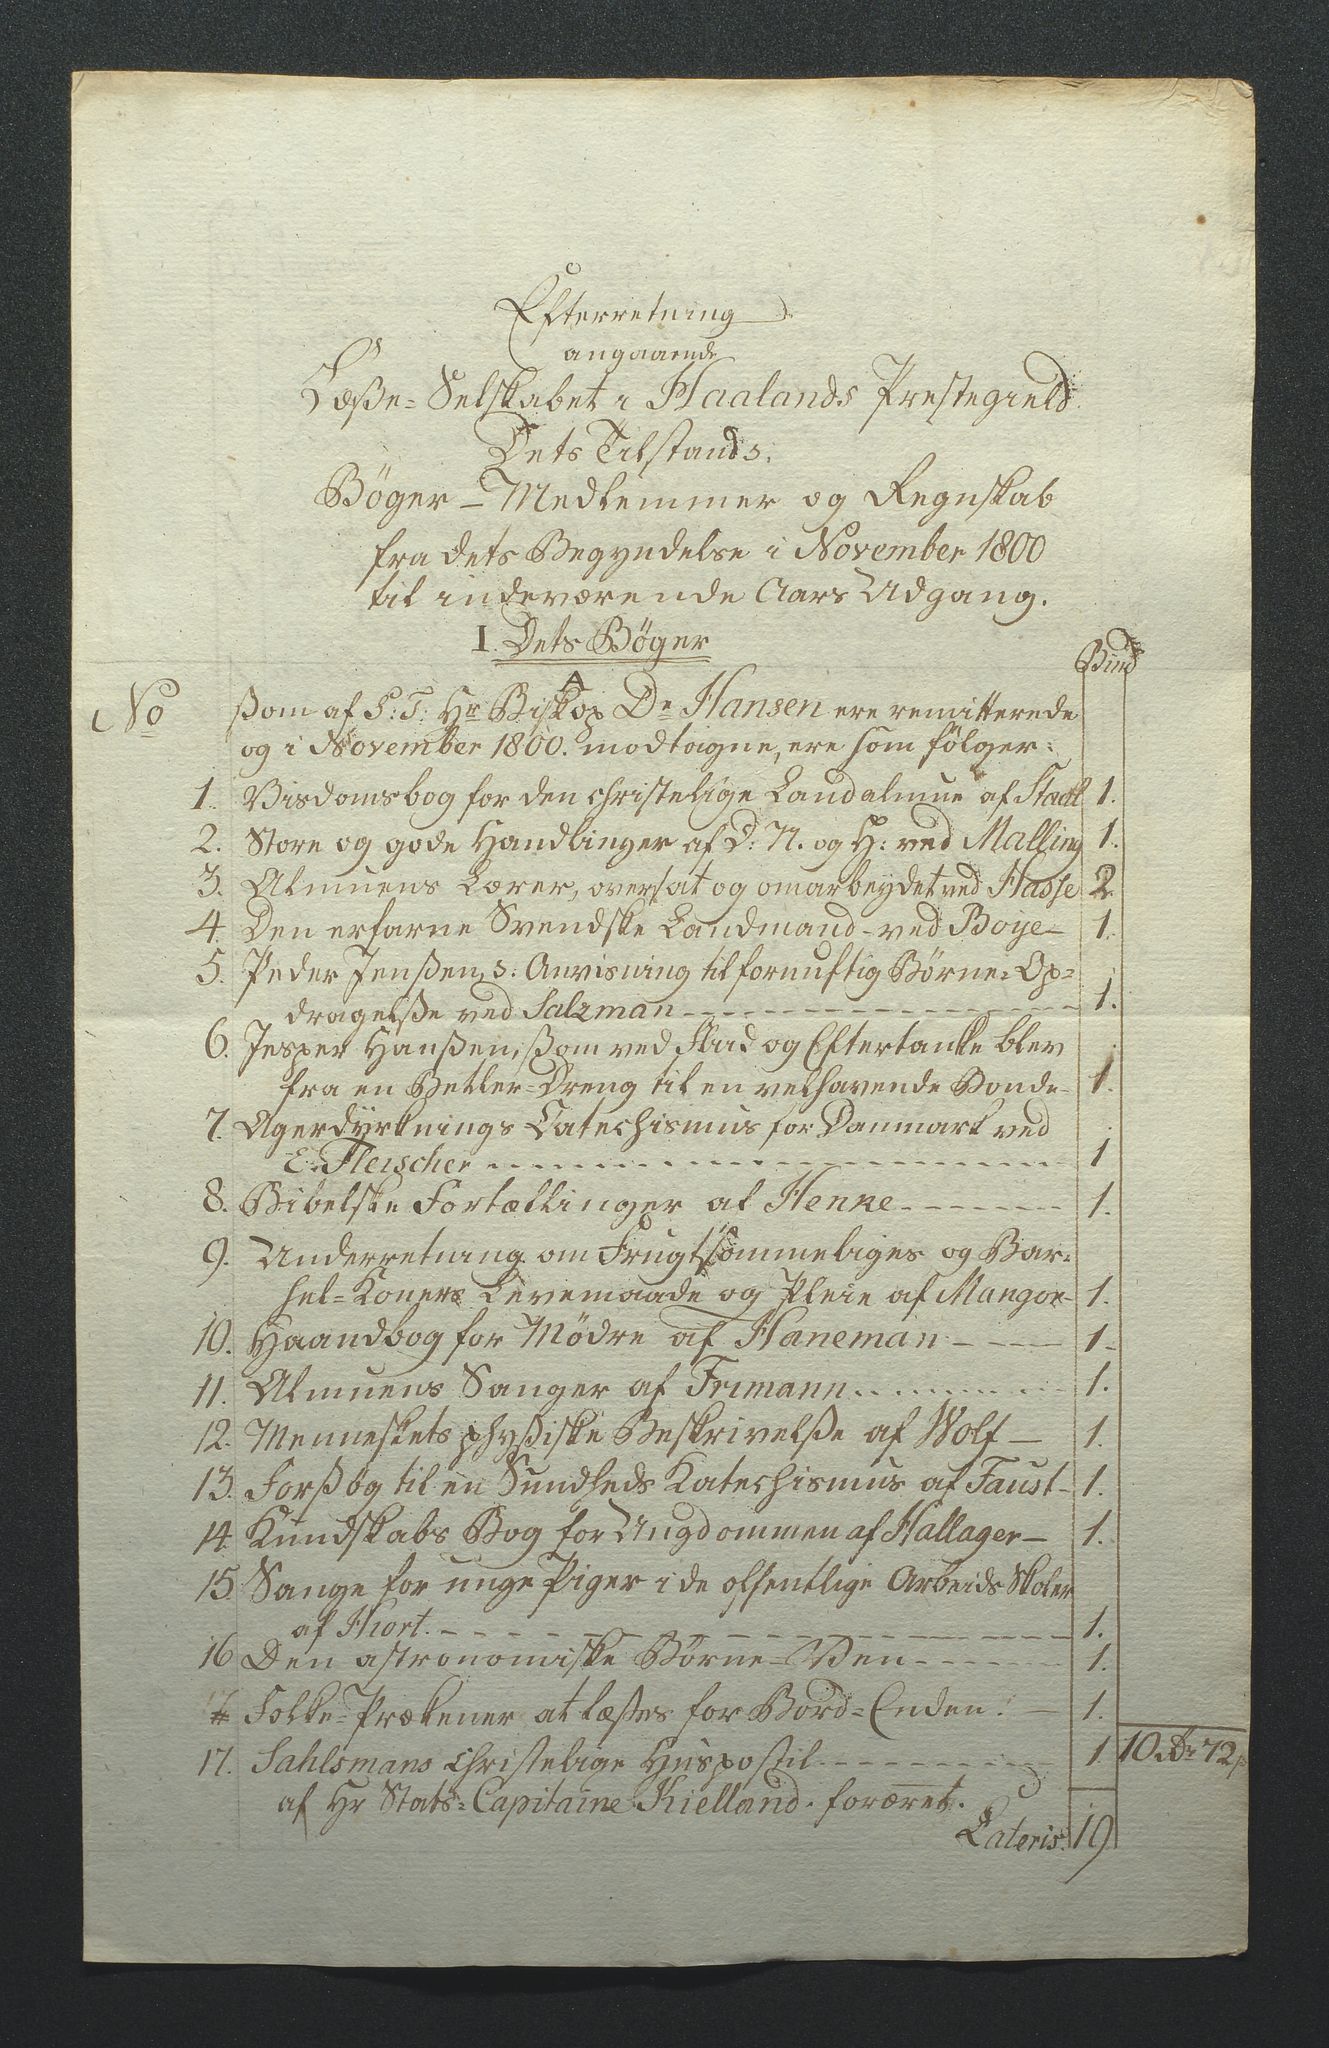 Efterretning
angaaende
Læße-Selskabet i Haalands Prestegield
Dets Tilstands.
Bøger - Medlemmer og Regnskab
fra dets Begyndelse i November 1800
til indeværende Aars Udgang.
I. Dets Bøger
Bind
A
No ßom af S: T: Hr Biskop Dr Hansen ere remitterede
og i November 1800. modtagne, ere som følger:
1. Visdomsbog for den christelige Landalmue af 1.
2. Store og gode Handlinger af D: N. og H: ved Malling 1.
3. Almuens Lærer, oversat og omarbeydet ved Hasse 2
4. Den erfarne Svendske Landmand - ved Boye - 1.
5. Peder Jenßen, s: Anvisning til fornuftig Børne-Op=
dragelße ved Salzman 1.
6. Jesper Hanßen, ßom ved Flid og Eftertanke blev
fra en Betler-Dreng til en velhavende Bonde 1.
7. Agerdyrknings Catechismus for Danmark ved
E. Fleischer 1
8. Bibelske Fortællinger af Henke 1.
9. Underretning om Frugtsommeliges og Bar=
sel-Koners Levemaade og Pleie af Mangor 1.
10. Haandbog for Mødre af Haneman 1
11. Almuens Sanger af Frimann 1.
12. Menneskets physiske Beskrivelße af Wolf - 1.
13. Forßøg til en Sundheds Katechismus af Faust - 1.
14. Kundskabs Bog for Ungdommen af Hallager - 1.
15. Sange for unge Piger i de offentlige Arbeids Skoler
af Hiort. 1.
16 Den astronomiske Børne-Ven 1.
Folke-Prækener at læßes for Bord-Enden. - 1.
17. Sahlsmans christelige Huspostil 1. 10 Rdr 72 s
af Hr Stats-Capitaine Kielland. foræret.
Lateris 19